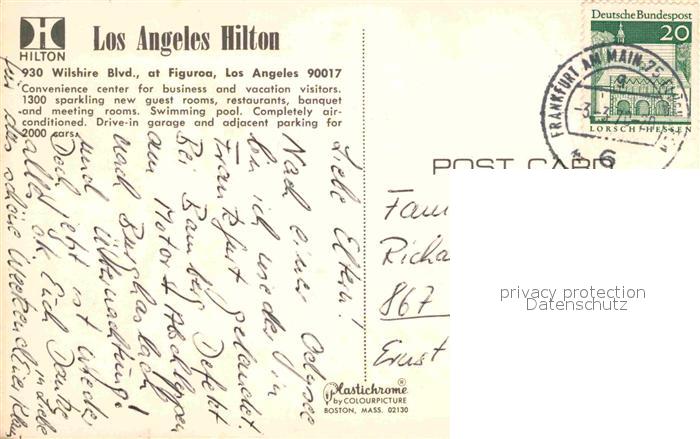 HILTON
Los Angeles Hilton
930 Wilshire Blvd., at Figuroa, Los Angeles 90017
Convenience center for business and vacation visitors.
1300 sparkling new guest rooms, restaurants, banquet
and meeting rooms. Swimming pool. Completely air-
conditioned. Drive-in garage and adjacent parking for
2000 cars.
Liebe Eltern!
Nach einer Odysee
bin ich wieder in
Frankfurt gelandet.
Bei Bamberg Defekt
am Motor + Abschleppen
nach Burghaslach
und Übernachtung!
Doch jetzt ist wieder
alles ok Euch Danke
für das schöne Wochenende
in Liebe
POST CARD
Fam
Richa
867
Ernst
Plastichrome®
by COLOURPICTURE
BOSTON, MASS. 02130
Deutsche Bundespost
20
LORSCH/HESSEN
FRANKFURT AM MAIN 75
6
privacy protection
Datenschutz